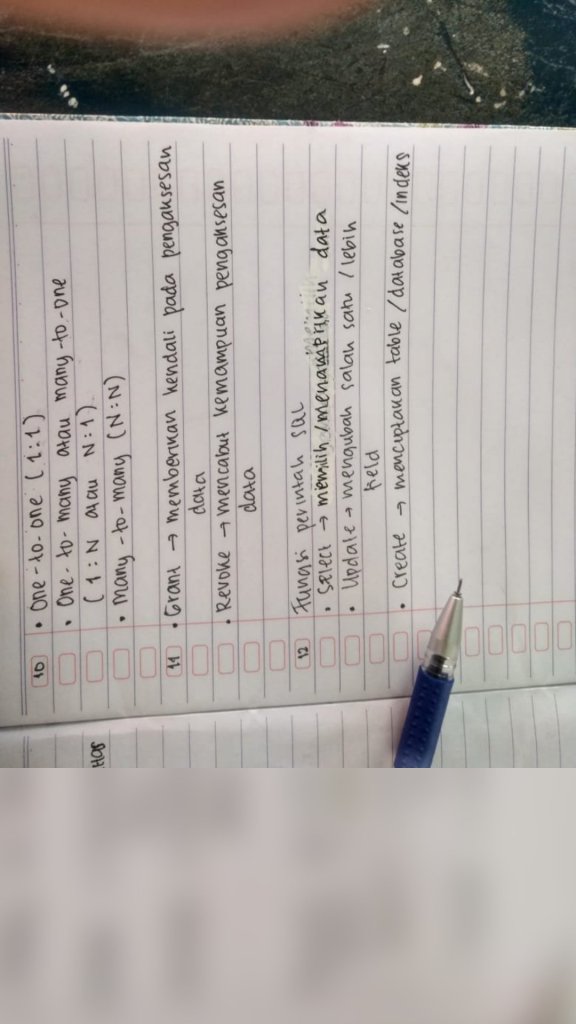 10 • One-to-one (1:1)
• One-to-many atau many-to-one
(1:N atau N:1)
• Many-to-many (N:N)
11 • Grant → memberikan kendali pada pengaksesan
data
• Revoke → mencabut kemampuan pengaksesan
data
12 Fungsi perintah SQL
• Select → memilih/menampilkan data
• Update → mengubah salah satu / lebih
field
• Create → menciptakan table / database / indeks